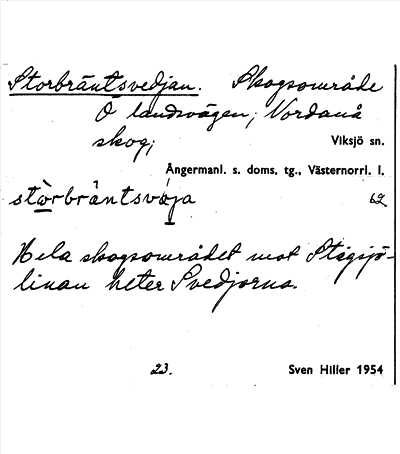 Storbräntsvedjan. Skogsområde
Ö landsvägen, Nordanå
skog;
Viksjö sn.
Ångermanl. s. doms. tg., Västernorrl. l.
stòrbräntsvája 62
Hela skogsområdet mot Stigsjö-
linan heter Svedjorna.
23. Sven Hiller 1954